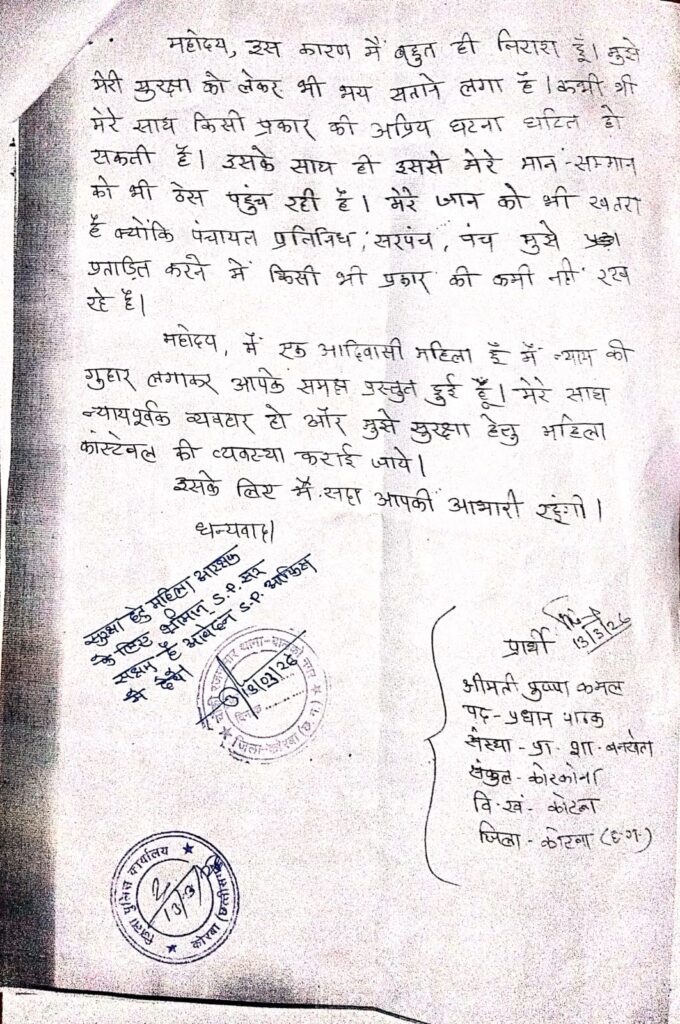 महोदय, इस कारण मैं बहुत ही निराश हूँ। मुझे
मेरी सुरक्षा को लेकर भी भय सताने लगा है। कभी भी
मेरे साथ किसी प्रकार की अप्रिय घटना घटित हो
सकती है। इसके साथ ही इससे मेरे मान-सम्मान
को भी ठेस पहुंच रही है। मेरे जान को भी खतरा
है क्योंकि पंचायत प्रतिनिधि, सरपंच, पंच मुझे
प्रताड़ित करने में किसी भी प्रकार की कमी नहीं रख
रहे है।
महोदय, मैं एक आदिवासी महिला हूँ मैं न्याय की
गुहार लगाकर आपके समक्ष प्रस्तुत हुई हूँ। मेरे साथ
न्यायपूर्वक व्यवहार हो और मुझे सुरक्षा हेतु महिला
कांस्टेबल की व्यवस्था कराई जाये।
इसके लिए मैं सदा आपकी आभारी रहूंगी।
धन्यवाद।
सुरक्षा हेतु महिला आरक्षक
के लिए श्रीमान S.P. सर
सक्षम है आवेदन S.P. आफिस
में देवें
13/03/26
थाना
जिला-कोरबा (छ.ग.)
13/3/26
प्रार्थी
श्रीमती पुष्पा कमल
पद - प्रधान पाठक
संस्था - प्रा. शा. बनखेता
संकुल - कोरकोमा
वि. खं. - कोरबा
जिला - कोरबा (छ.ग.)
जिला पुलिस कार्यालय
13/3/26
कोरबा (छत्तीसगढ़)